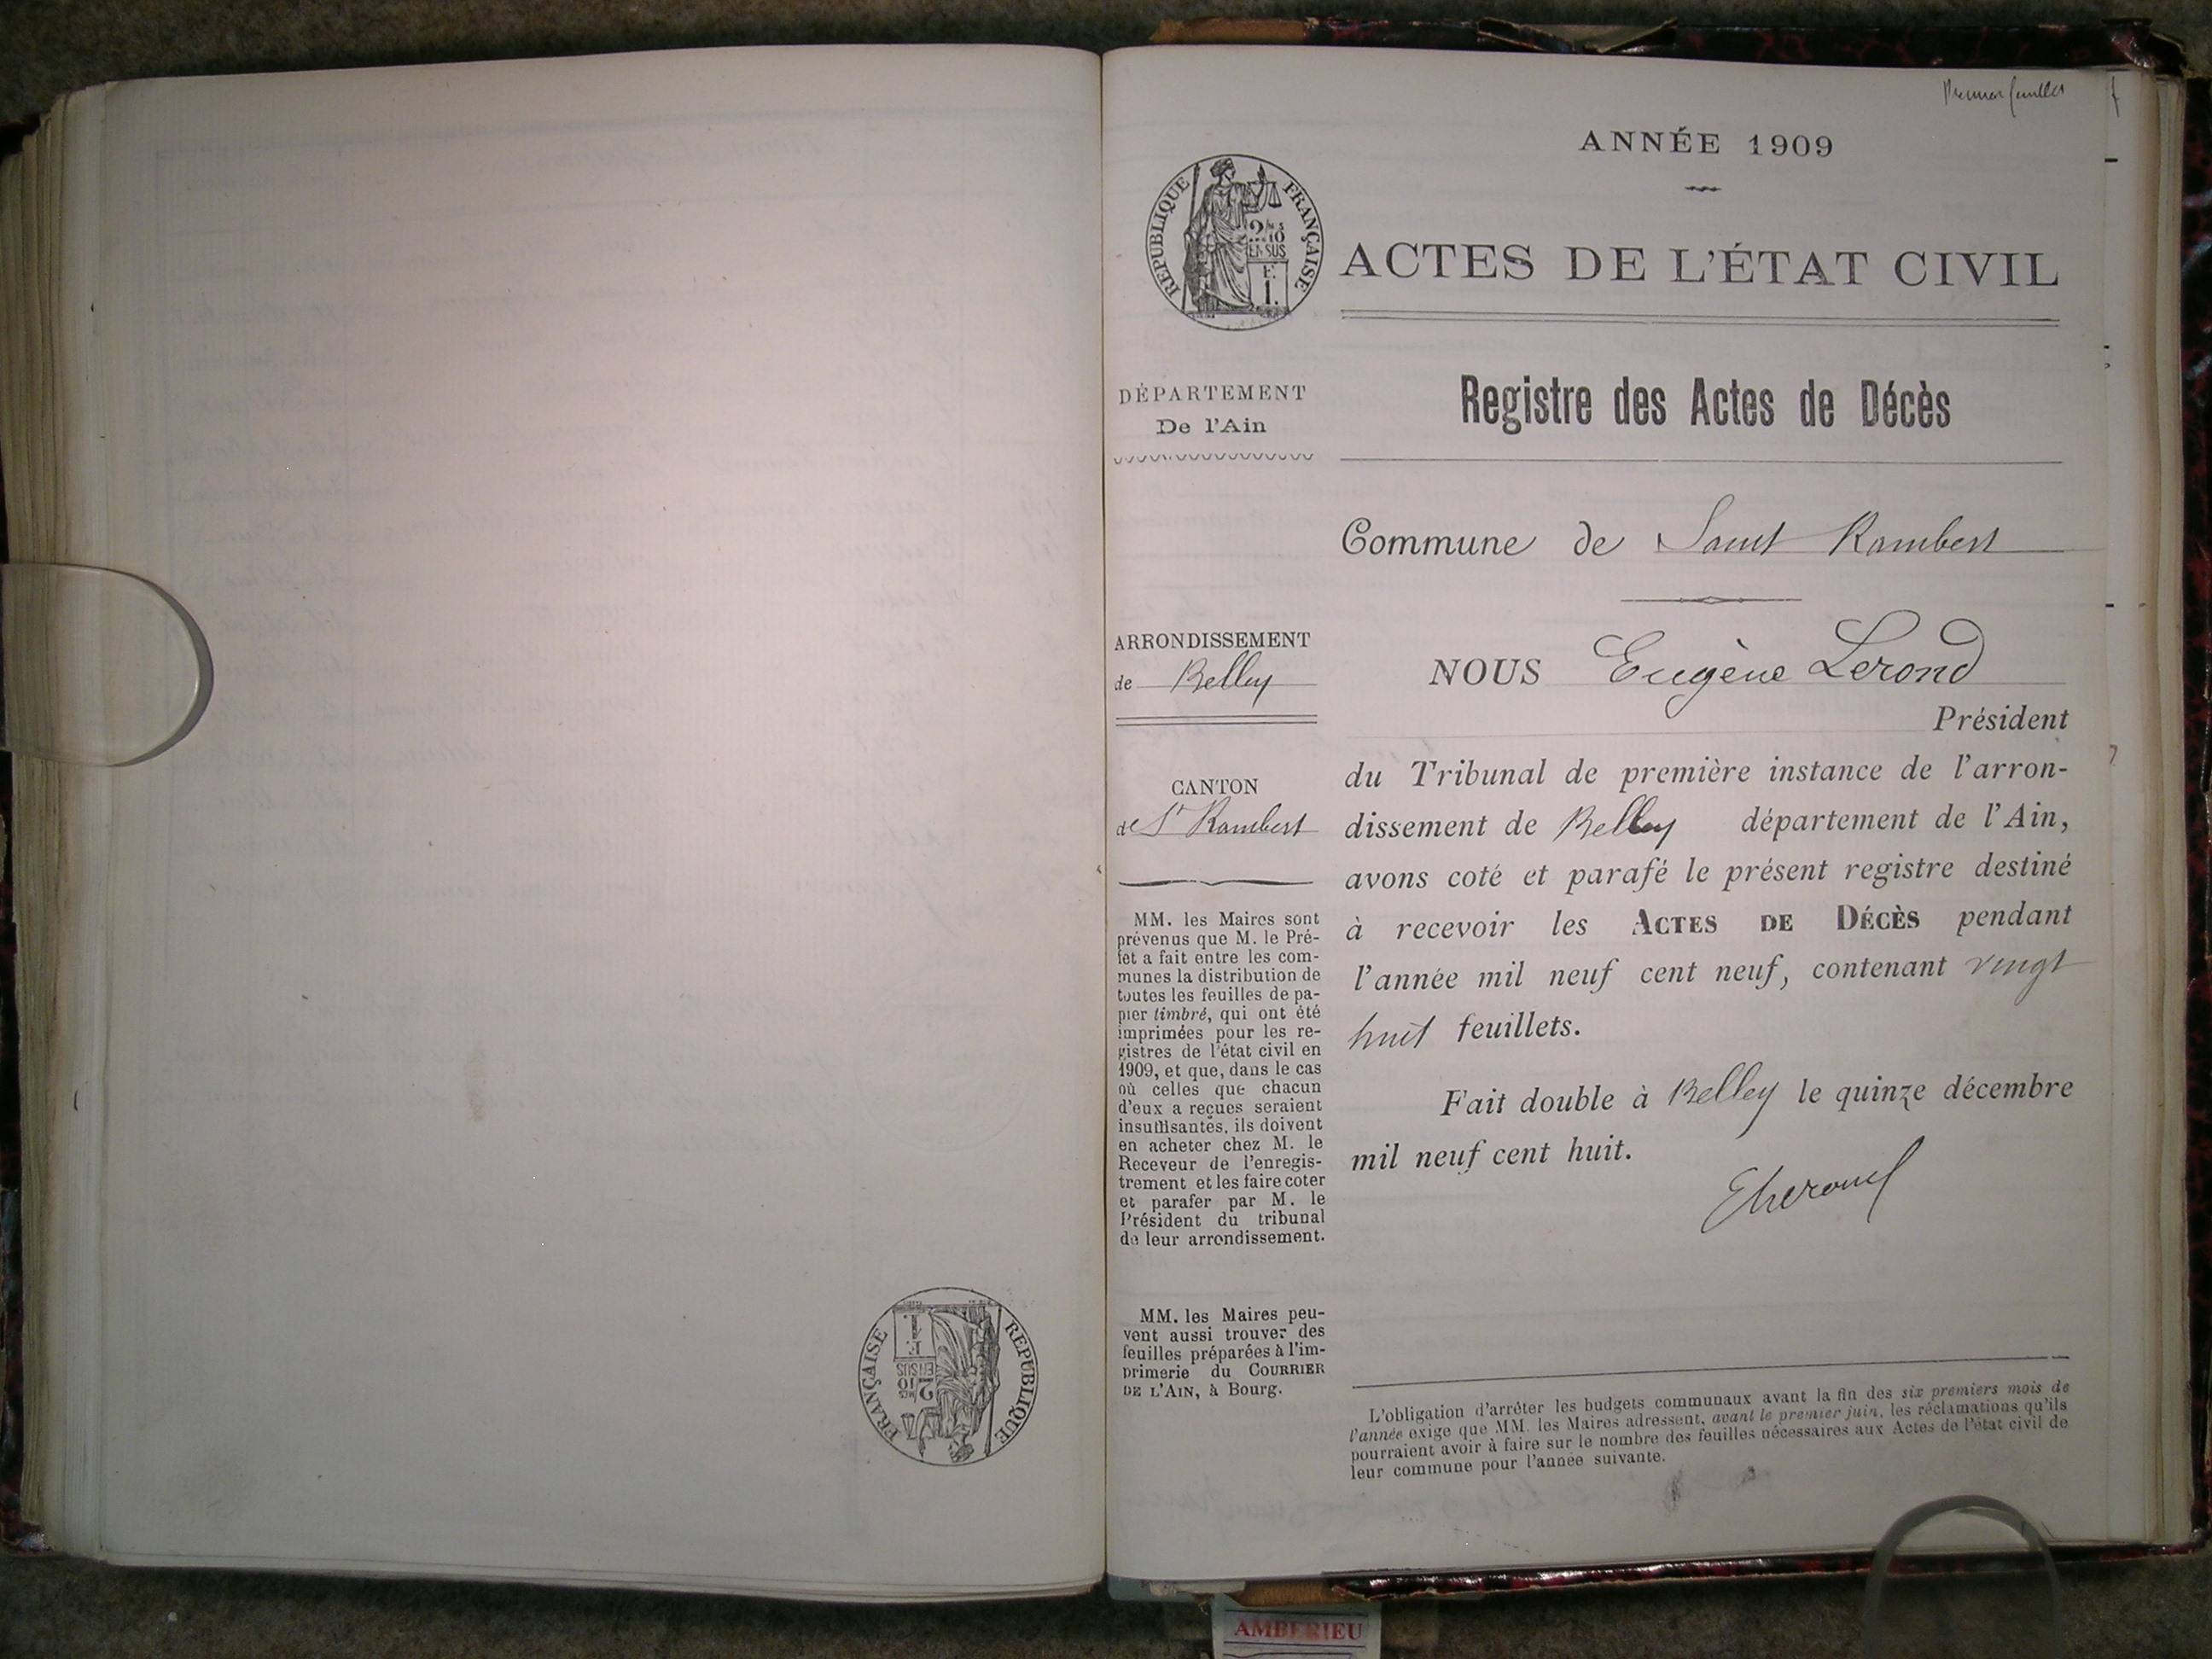 Premier feuillet
ANNÉE 1909
RÉPUBLIQUE FRANÇAISE
2/10
EN SUS
1 F.
ACTES DE L'ÉTAT CIVIL
DÉPARTEMENT
De l'Ain
Registre des Actes de Décès
Commune de Saint Rambert
ARRONDISSEMENT
de Belley
NOUS Eugène Lerond
Président
du Tribunal de première instance de l'arron-
dissement de Belley département de l'Ain,
avons coté et parafé le présent registre destiné
à recevoir les ACTES DE DÉCÈS pendant
l'année mil neuf cent neuf, contenant vingt
huit feuillets.
Fait double à Belley le quinze décembre
mil neuf cent huit.
CANTON
de St Rambert
MM. les Maires sont
prévenus que M. le Pré-
fet a fait entre les com-
munes la distribution de
toutes les feuilles de pa-
pier timbré, qui ont été
imprimées pour les re-
gistres de l'état civil en
1909, et que, dans le cas
où celles que chacun
d'eux a reçues seraient
insuffisantes, ils doivent
en acheter chez M. le
Receveur de l'enregis-
trement et les faire coter
et parafer par M. le
Président du tribunal
de leur arrondissement.
MM. les Maires peu-
vent aussi trouver des
feuilles préparées à l'im-
primerie du COURRIER
DE L'AIN, à Bourg.
L'obligation d'arrêter les budgets communaux avant la fin des six premiers mois de
l'année exige que MM. les Maires adressent, avant le premier juin, les réclamations qu'ils
pourraient avoir à faire sur le nombre des feuilles nécessaires aux Actes de l'état civil de
leur commune pour l'année suivante.
RÉPUBLIQUE FRANÇAISE
2/10
EN SUS
1 F.
AMBERIEU